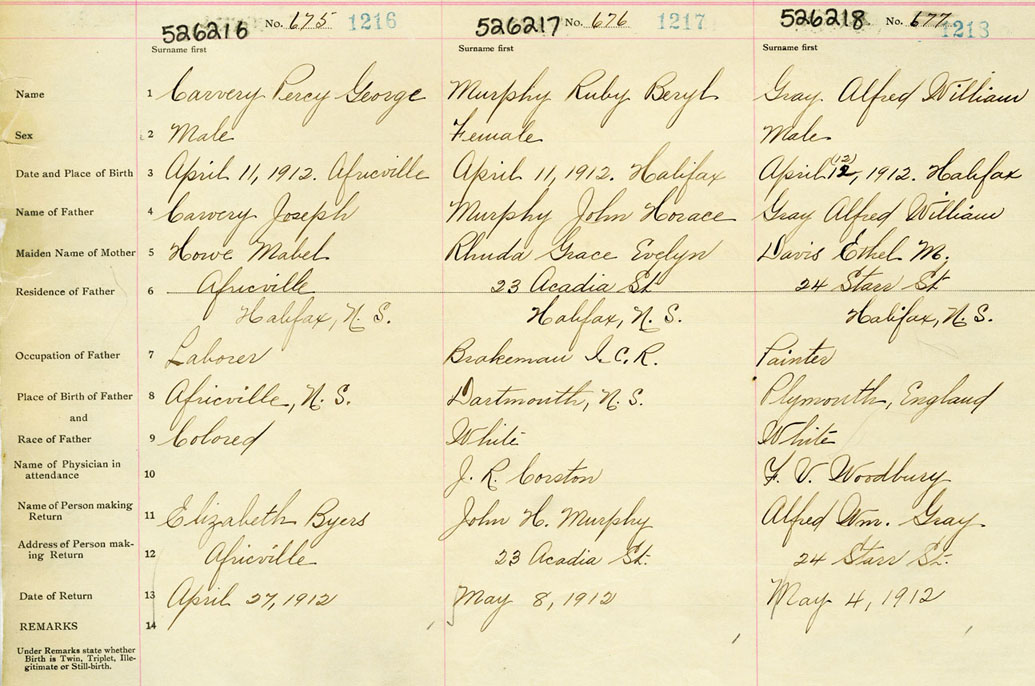 526216 No. 675 1216 526217 No. 676 1217 526218 No. 677 1218
Surname first Surname first Surname first
Name 1 Carvery Percy George Murphy Ruby Beryl Gray Alfred William
Sex 2 Male Female Male
Date and Place of Birth 3 April 11, 1912. Africville April 11, 1912. Halifax April 12, (12) 1912. Halifax
Name of Father 4 Carvery Joseph Murphy John Horace Gray Alfred William
Maiden Name of Mother 5 Howe Mabel Rhuda Grace Evelyn Davis Ethel M.
Residence of Father 6 Africville 23 Acadia St 24 Starr St
Halifax, N. S. Halifax, N. S. Halifax, N. S.
Occupation of Father 7 Laborer Brakeman I. C. R. Painter
Place of Birth of Father 8 Africville, N. S. Dartmouth, N. S. Plymouth, England
and
Race of Father 9 Colored White White
Name of Physician in
attendance 10 J. R. Corston F. V. Woodbury
Name of Person making
Return 11 Elizabeth Byers John H. Murphy Alfred Wm. Gray
Address of Person mak-
ing Return 12 Africville 23 Acadia St. 24 Starr St.
Date of Return 13 April 27, 1912 May 8, 1912 May 4, 1912
REMARKS 14
Under Remarks state whether
Birth is Twin, Triplet, Ille-
gitimate or Still-birth.